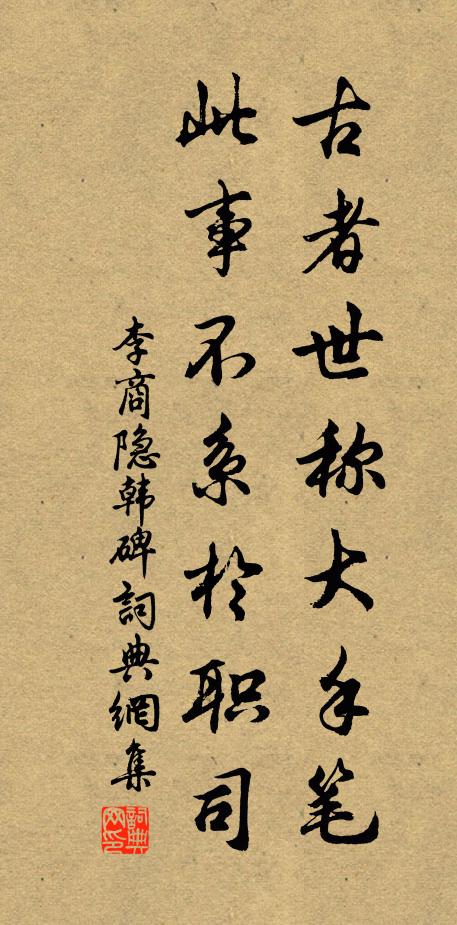 古者世称大手笔
此事不系於职司
李商隐韩碑詞典網集
詞典网印